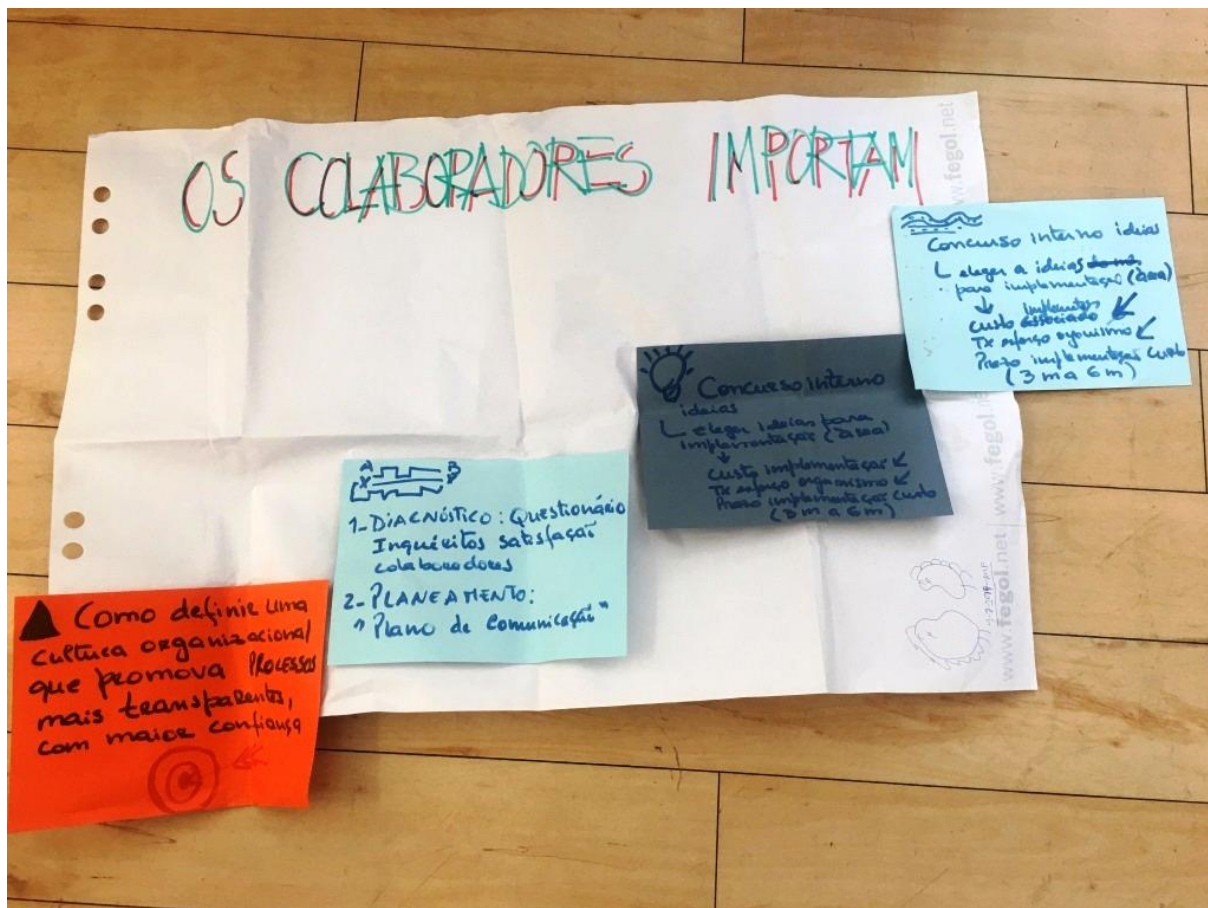 OS COLABORADORES IMPORTAM
Concurso interno ideias
eleger a ideias
para implementação (área)
implementação
custo associado
Tx esforço organismo
Prazo implementação custo
(3 m a 6 m)
Concurso interno
ideias
eleger ideias para
implementação (área)
custo implementação
Tx esforço organismo
Prazo implementação custo
(3 m a 6 m)
A B
X
1-DIAGNÓSTICO: QUESTIONÁRIO
Inquéritos satisfação
colaboradores
2-PLANEAMENTO:
"Plano de Comunicação"
Como definir uma
cultura organizacional
que promova PROCESSOS
mais transparentes,
com maior confiança
C
www.fegol.net | www.fegol.net
www.fegol.net